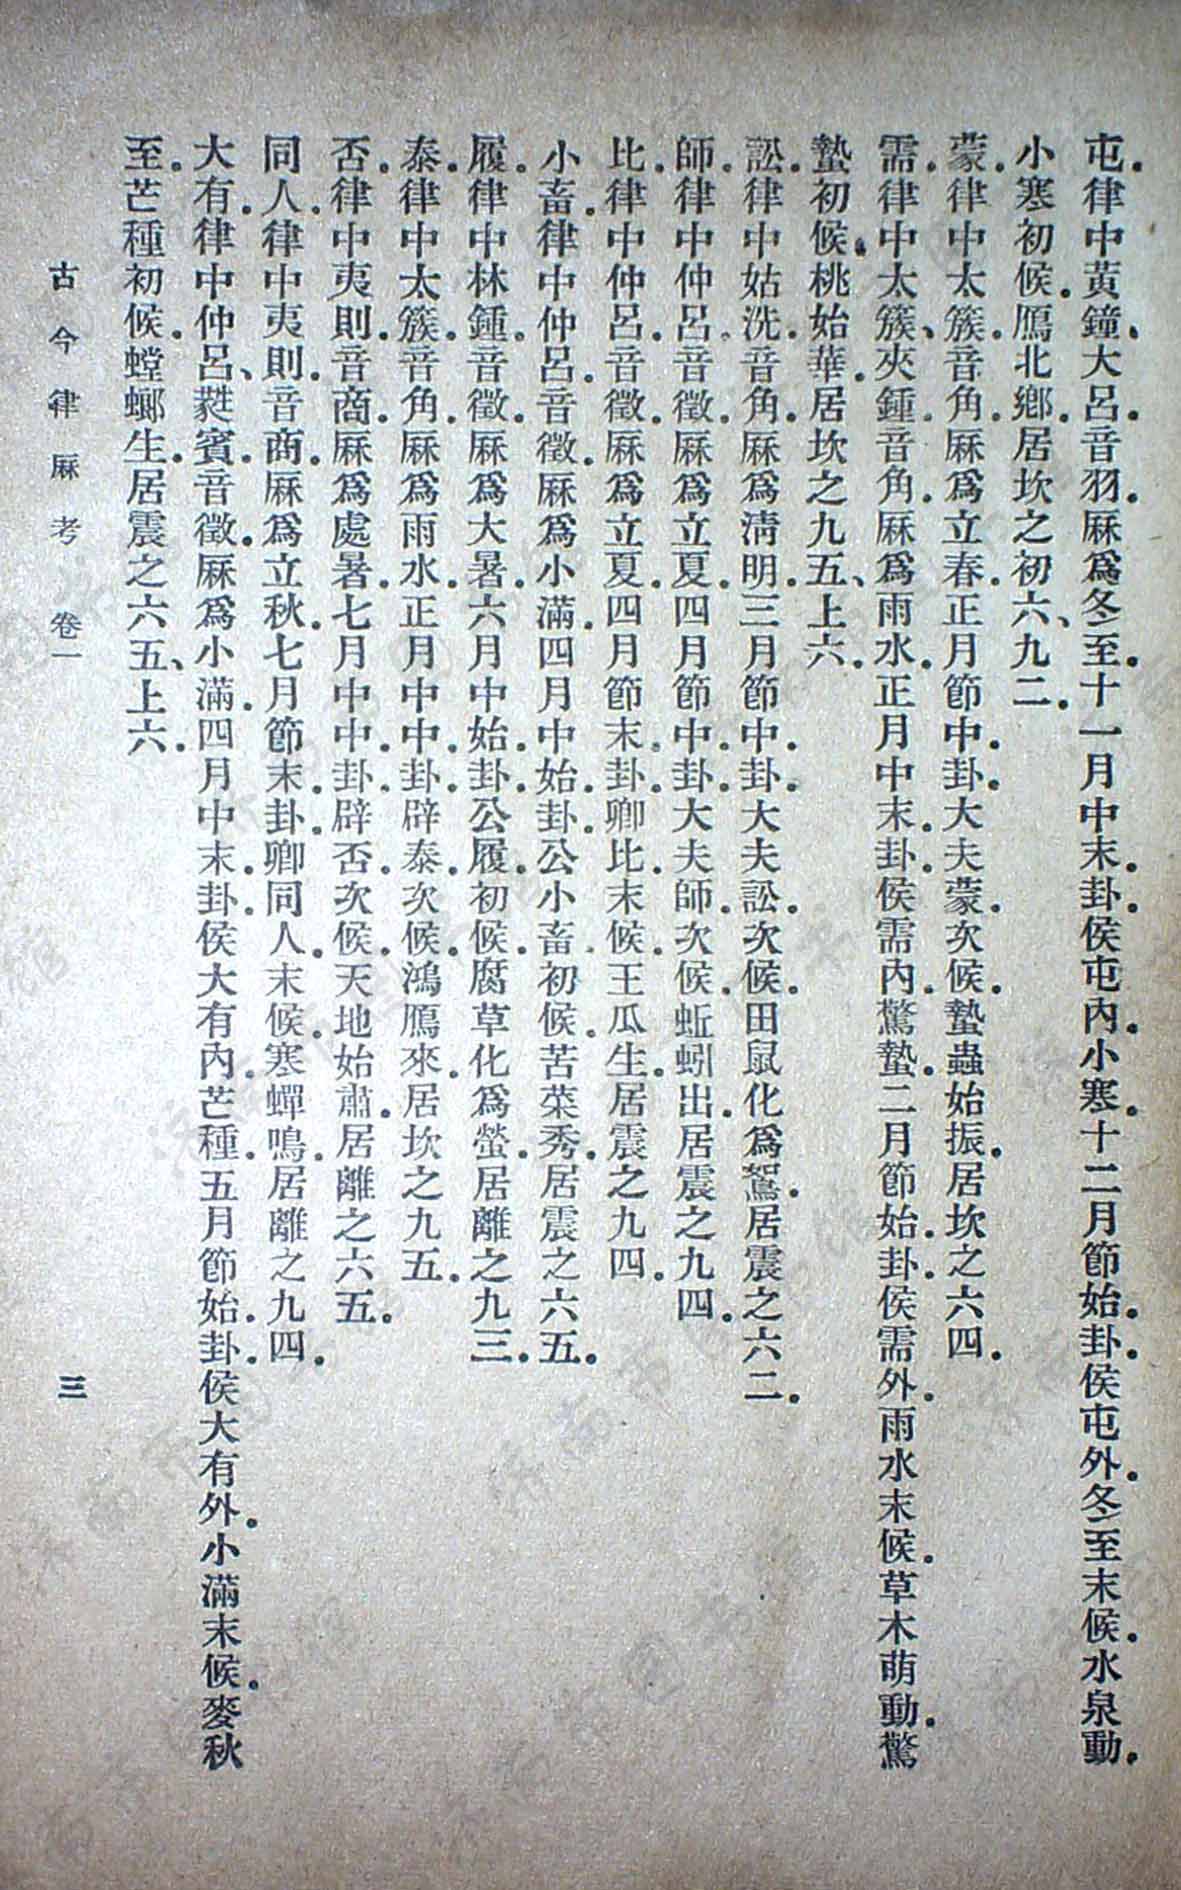 屯。律中黃鐘、大呂。音羽。厤爲冬至。十一月中末。卦。侯屯內。小寒。十二月節始。卦。侯屯外。冬至末候。水泉動。
小寒初候。鴈北鄉。居坎之初六、九二。
蒙。律中太簇。音角。厤爲立春。正月節中。卦。大夫蒙。次候。蟄蟲始振。居坎之六四。
需。律中太簇、夾鍾。音角。厤爲雨水。正月中末。卦。侯需內。驚蟄。二月節始。卦。侯需外。雨水末候。草木萌動。驚
蟄初候。桃始華。居坎之九五、上六。
訟。律中姑洗。音角。厤爲淸明。三月節中。卦。大夫訟。次候。田鼠化爲鴽。居震之六二。
師。律中仲呂。音徵。厤爲立夏。四月節中。卦。大夫師。次候。蚯蚓出。居震之九四。
比。律中仲呂。音徵。厤爲立夏。四月節末。卦。卿比。末候。王瓜生。居震之九四。
小畜。律中仲呂。音徵。厤爲小滿。四月中始。卦。公小畜。初候。苦菜秀。居震之六五。
履。律中林鍾。音徵。厤爲大暑。六月中始。卦。公履。初候。腐草化爲螢。居離之九三。
泰。律中太簇。音角。厤爲雨水。正月中中。卦。辟泰。次候。鴻鴈來。居坎之九五。
否。律中夷則。音商。厤爲處暑。七月中中。卦。辟否。次候。天地始肅。居離之六五。
同人。律中夷則。音商。厤爲立秋。七月節末。卦。卿同人。末候。寒蟬鳴。居離之九四。
大有。律中仲呂、蕤賓。音徵。厤爲小滿。四月中末。卦。侯大有內。芒種。五月節始。卦。侯大有外。小滿末候。麥秋
至。芒種初候。螳螂生。居震之六五、上六。
古今律厤考 卷一 三